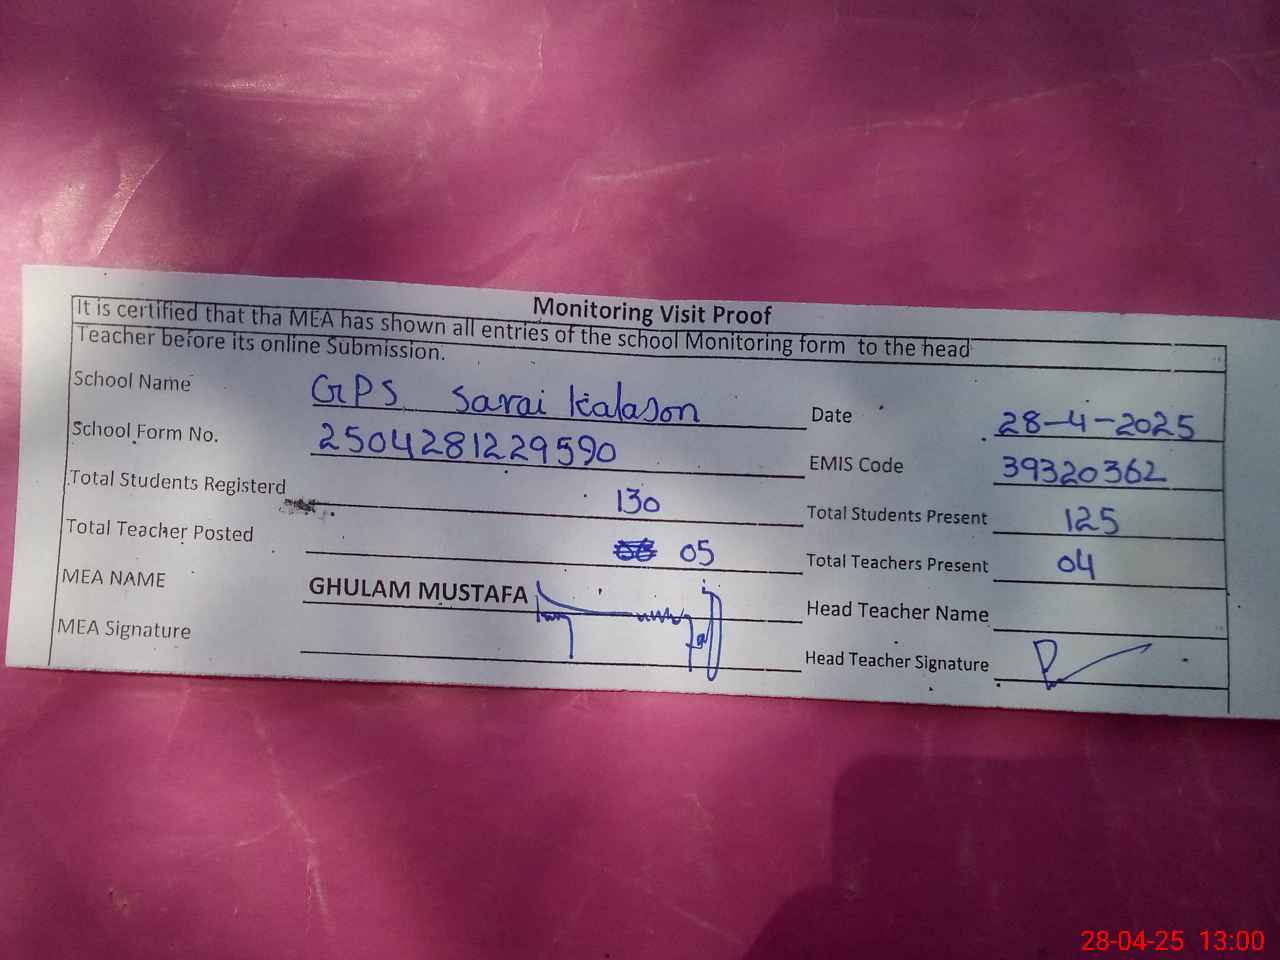 Monitoring Visit Proof
It is certified that tha MEA has shown all entries of the school Monitoring form to the head
Teacher before its online Submission.
School Name GPS Sarai Kalason Date 28-4-2025
School Form No. 2504281229590 EMIS Code 39320362
Total Students Registerd 130 Total Students Present 125
Total Teacher Posted 05 Total Teachers Present 04
MEA NAME GHULAM MUSTAFA Head Teacher Name
MEA Signature Head Teacher Signature
28-04-25 13:00